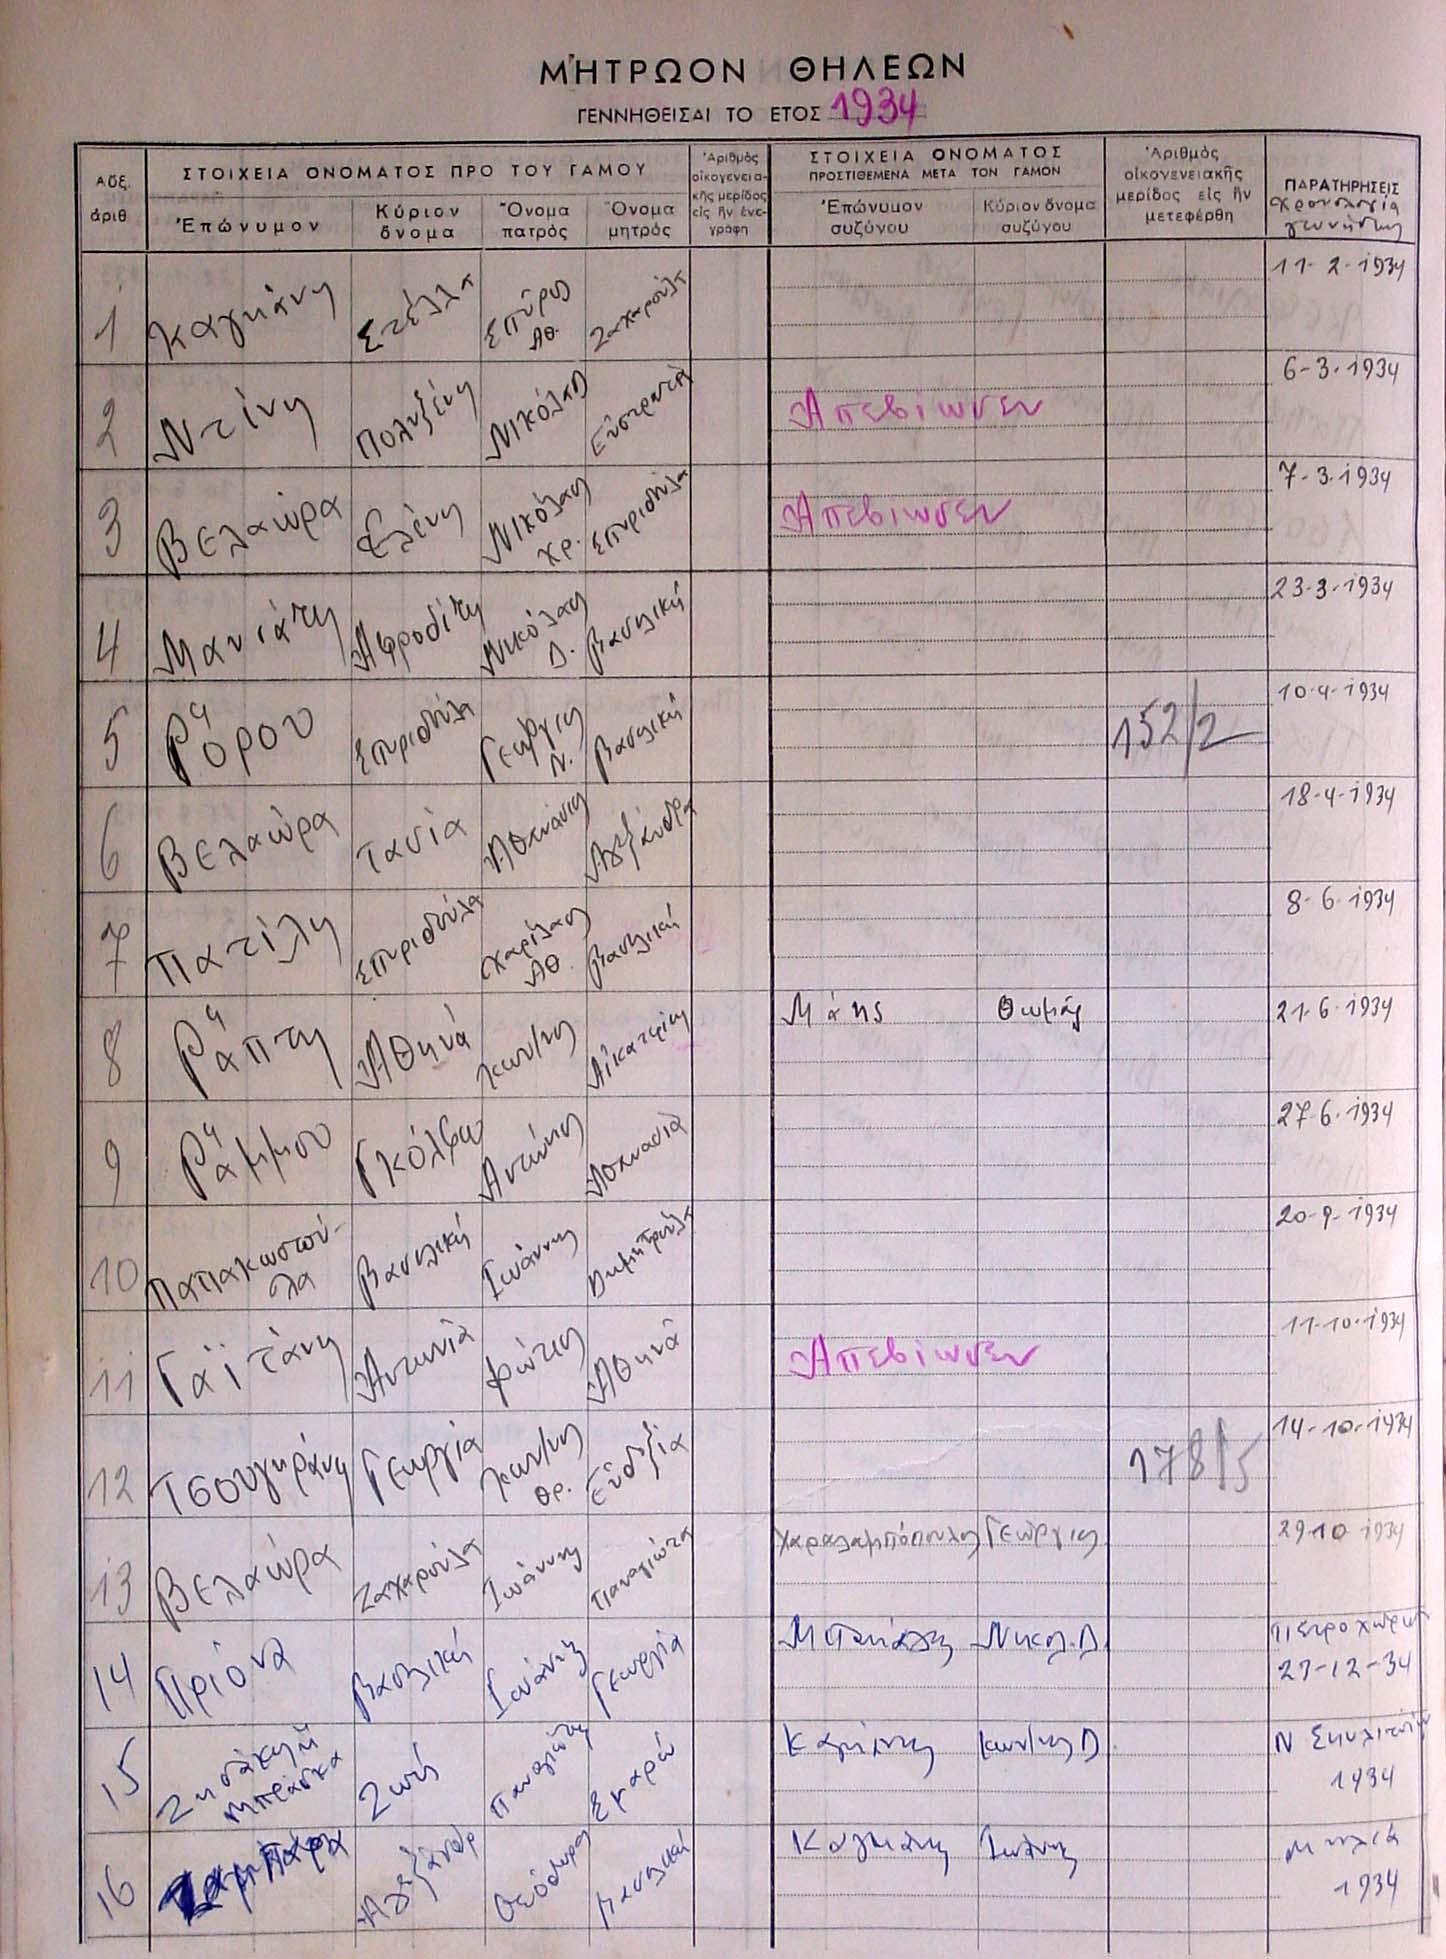 ΜΗΤΡΩΟΝ ΘΗΛΕΩΝ
ΓΕΝΝΗΘΕΙΣΑΙ ΤΟ ΕΤΟΣ 1934
Αὔξ. ἀριθ
ΣΤΟΙΧΕΙΑ ΟΝΟΜΑΤΟΣ ΠΡΟ ΤΟΥ ΓΑΜΟΥ
Ἐπώνυμον
Κύριον ὄνομα
Ὄνομα πατρὸς
Ὄνομα μητρὸς
Ἀριθμὸς οἰκογενειακῆς μερίδος εἰς ἣν ἐνεγράφη
ΣΤΟΙΧΕΙΑ ΟΝΟΜΑΤΟΣ ΠΡΟΣΤΙΘΕΜΕΝΑ ΜΕΤΑ ΤΟΝ ΓΑΜΟΝ
Ἐπώνυμον συζύγου
Κύριον ὄνομα συζύγου
Ἀριθμὸς οἰκογενειακῆς μερίδος εἰς ἣν μετεφέρθη
ΠΑΡΑΤΗΡΗΣΕΙΣ
χρονολογία γεννήσεως
1 Καγκάνη Στέλλα Σπῦρος Αθ. Ζαχαρούλα 11-2-1934
2 Ντίνη Πολυξένη Νικόλαος Εὐστρατία Απεβίωσεν 6-3-1934
3 Βελαώρα Ελένη Νικόλαος Χρ. Σπυριδούλα Απεβίωσεν 7-3-1934
4 Μανιάτη Αφροδίτη Νικόλαος Δ. Βασιλική 23-3-1934
5 Ρόρου Σπυριδούλα Γεώργιος Ν. Βασιλική 152/2 10-4-1934
6 Βελαώρα Τασία Αθανάσιος Αλεξάνδρα 18-4-1934
7 Πατίλη Σπυριδούλα Χαρίλαος Αθ Βασιλική 8-6-1934
8 Ράπτη Αθηνά Κων/νος Αἰκατερίνη Μάης Θωμάς 21-6-1934
9 Ράμμου Γκόλφω Αντώνιος Αθανασία 27-6-1934
10 Παπακωστούλα Βασιλική Ιωάννης Δημητρούλα 20-9-1934
11 Γαϊτάνη Αντωνία Φώτιος Αθηνᾶ Απεβίωσεν 11-10-1934
12 Τσουγκράνη Γεωργία Κων/νος Θρ. Εὐδοξία 178/5 14-10-1934
13 Βελαώρα Ζαχαρούλα Ιωάννης Παναγιώτα Χαραλαμπόπουλος Γεώργιος 29-10-1934
14 Πριόνα Βασιλική Ιωάννης Γεωργία Νικολ. Δ. Πετροχώρι
27-12-34
15 Ζησάκη ἢ Μπράσκα Ζωή Παναγιώτης Σμαρώ Κων/νος Δ Ν
1934
16 Αλεξάνδρ Θεόδωρος Βασιλική Καγκάνης Ιωάννης Μηλιά
1934